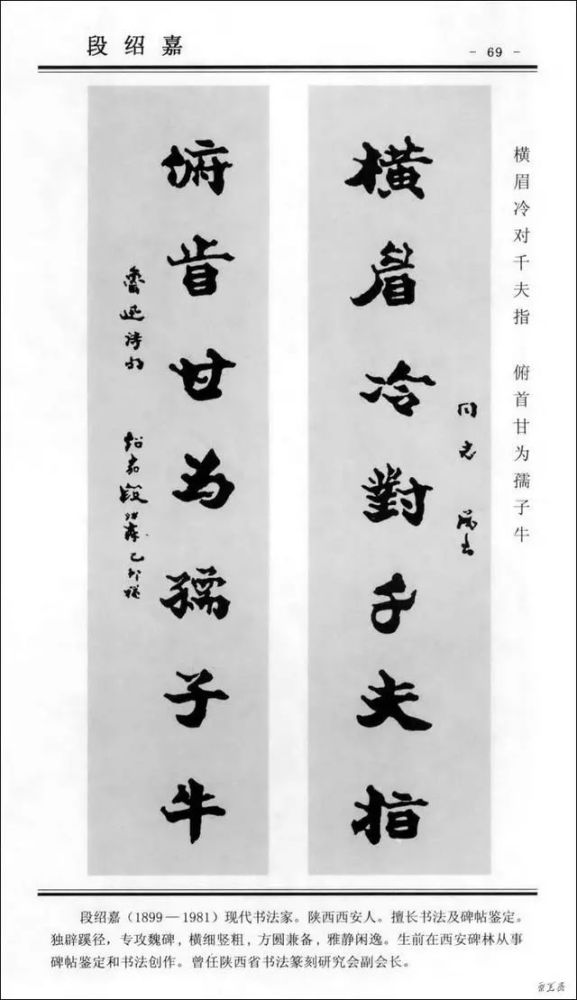 段绍嘉
- 69 -
横眉冷对千夫指 俯首甘为孺子牛
同志 属书
橫眉冷對千夫指
俯首甘为孺子牛
鲁迅诗句
绍嘉段
段绍嘉（1899—1981）现代书法家。陕西西安人。擅长书法及碑帖鉴定。
独辟蹊径，专攻魏碑，横细竖粗，方圆兼备，雅静闲逸。生前在西安碑林从事
碑帖鉴定和书法创作。曾任陕西省书法篆刻研究会副会长。